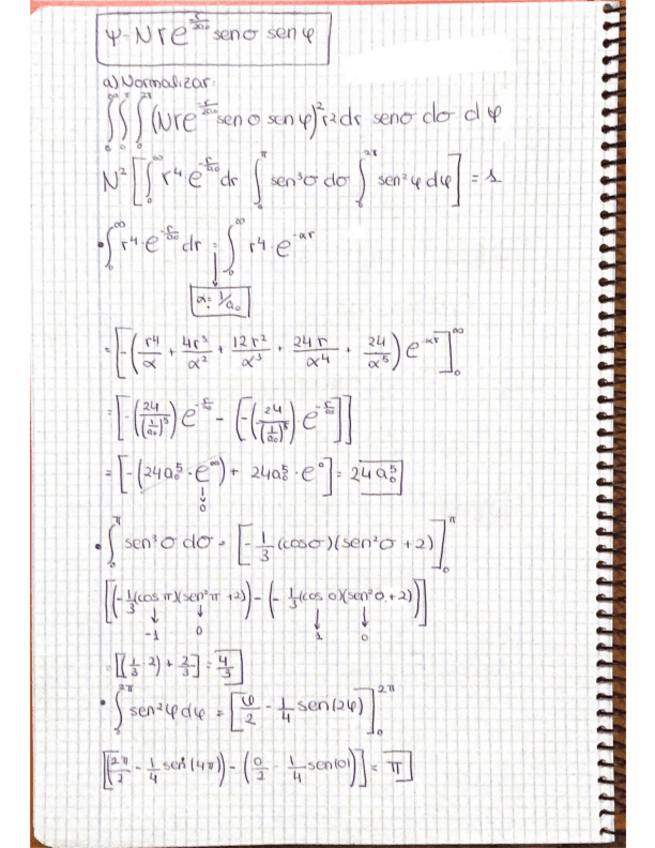 ψ = N r e^{-r/2a₀} senσ senφ
a) Normalizar:
∫₀^∞ ∫₀^π ∫₀^{2π} (N r e^{-r/2a₀} senσ senφ)² r² dr senσ dσ dφ
N² [∫₀^∞ r⁴·e^{-r/a₀} dr ∫₀^π sen³σ dσ ∫₀^{2π} sen²φ dφ] = 1
• ∫₀^∞ r⁴·e^{-r/a₀} dr = ∫₀^∞ r⁴·e^{-αr}
↓
α = 1/a₀
= [-(r⁴/α + 4r³/α² + 12r²/α³ + 24r/α⁴ + 24/α⁵) e^{-αr}]₀^∞
= [-(24/(1/a₀)⁵) e^{-r/a₀} - [-(24/(1/a₀)⁵) e^{-r/a₀}]]
= [-(24a₀⁵·e^∞) + 24a₀⁵·e⁰] = 24a₀⁵
↓
0
• ∫₀^π sen³σ dσ = [-1/3 (cosσ)(sen²σ + 2)]₀^π
[(-1/3(cos π)(sen²π + 2)) - (-1/3(cos 0)(sen²0 + 2))]
↓ ↓ ↓ ↓
-1 0 1 0
= [(1/3·2) + 2/3] = 4/3
• ∫₀^{2π} sen²φ dφ = [φ/2 - 1/4 sen(2φ)]₀^{2π}
[(2π/2 - 1/4 sen(4π)) - (0/2 - 1/4 sen(0))] = π